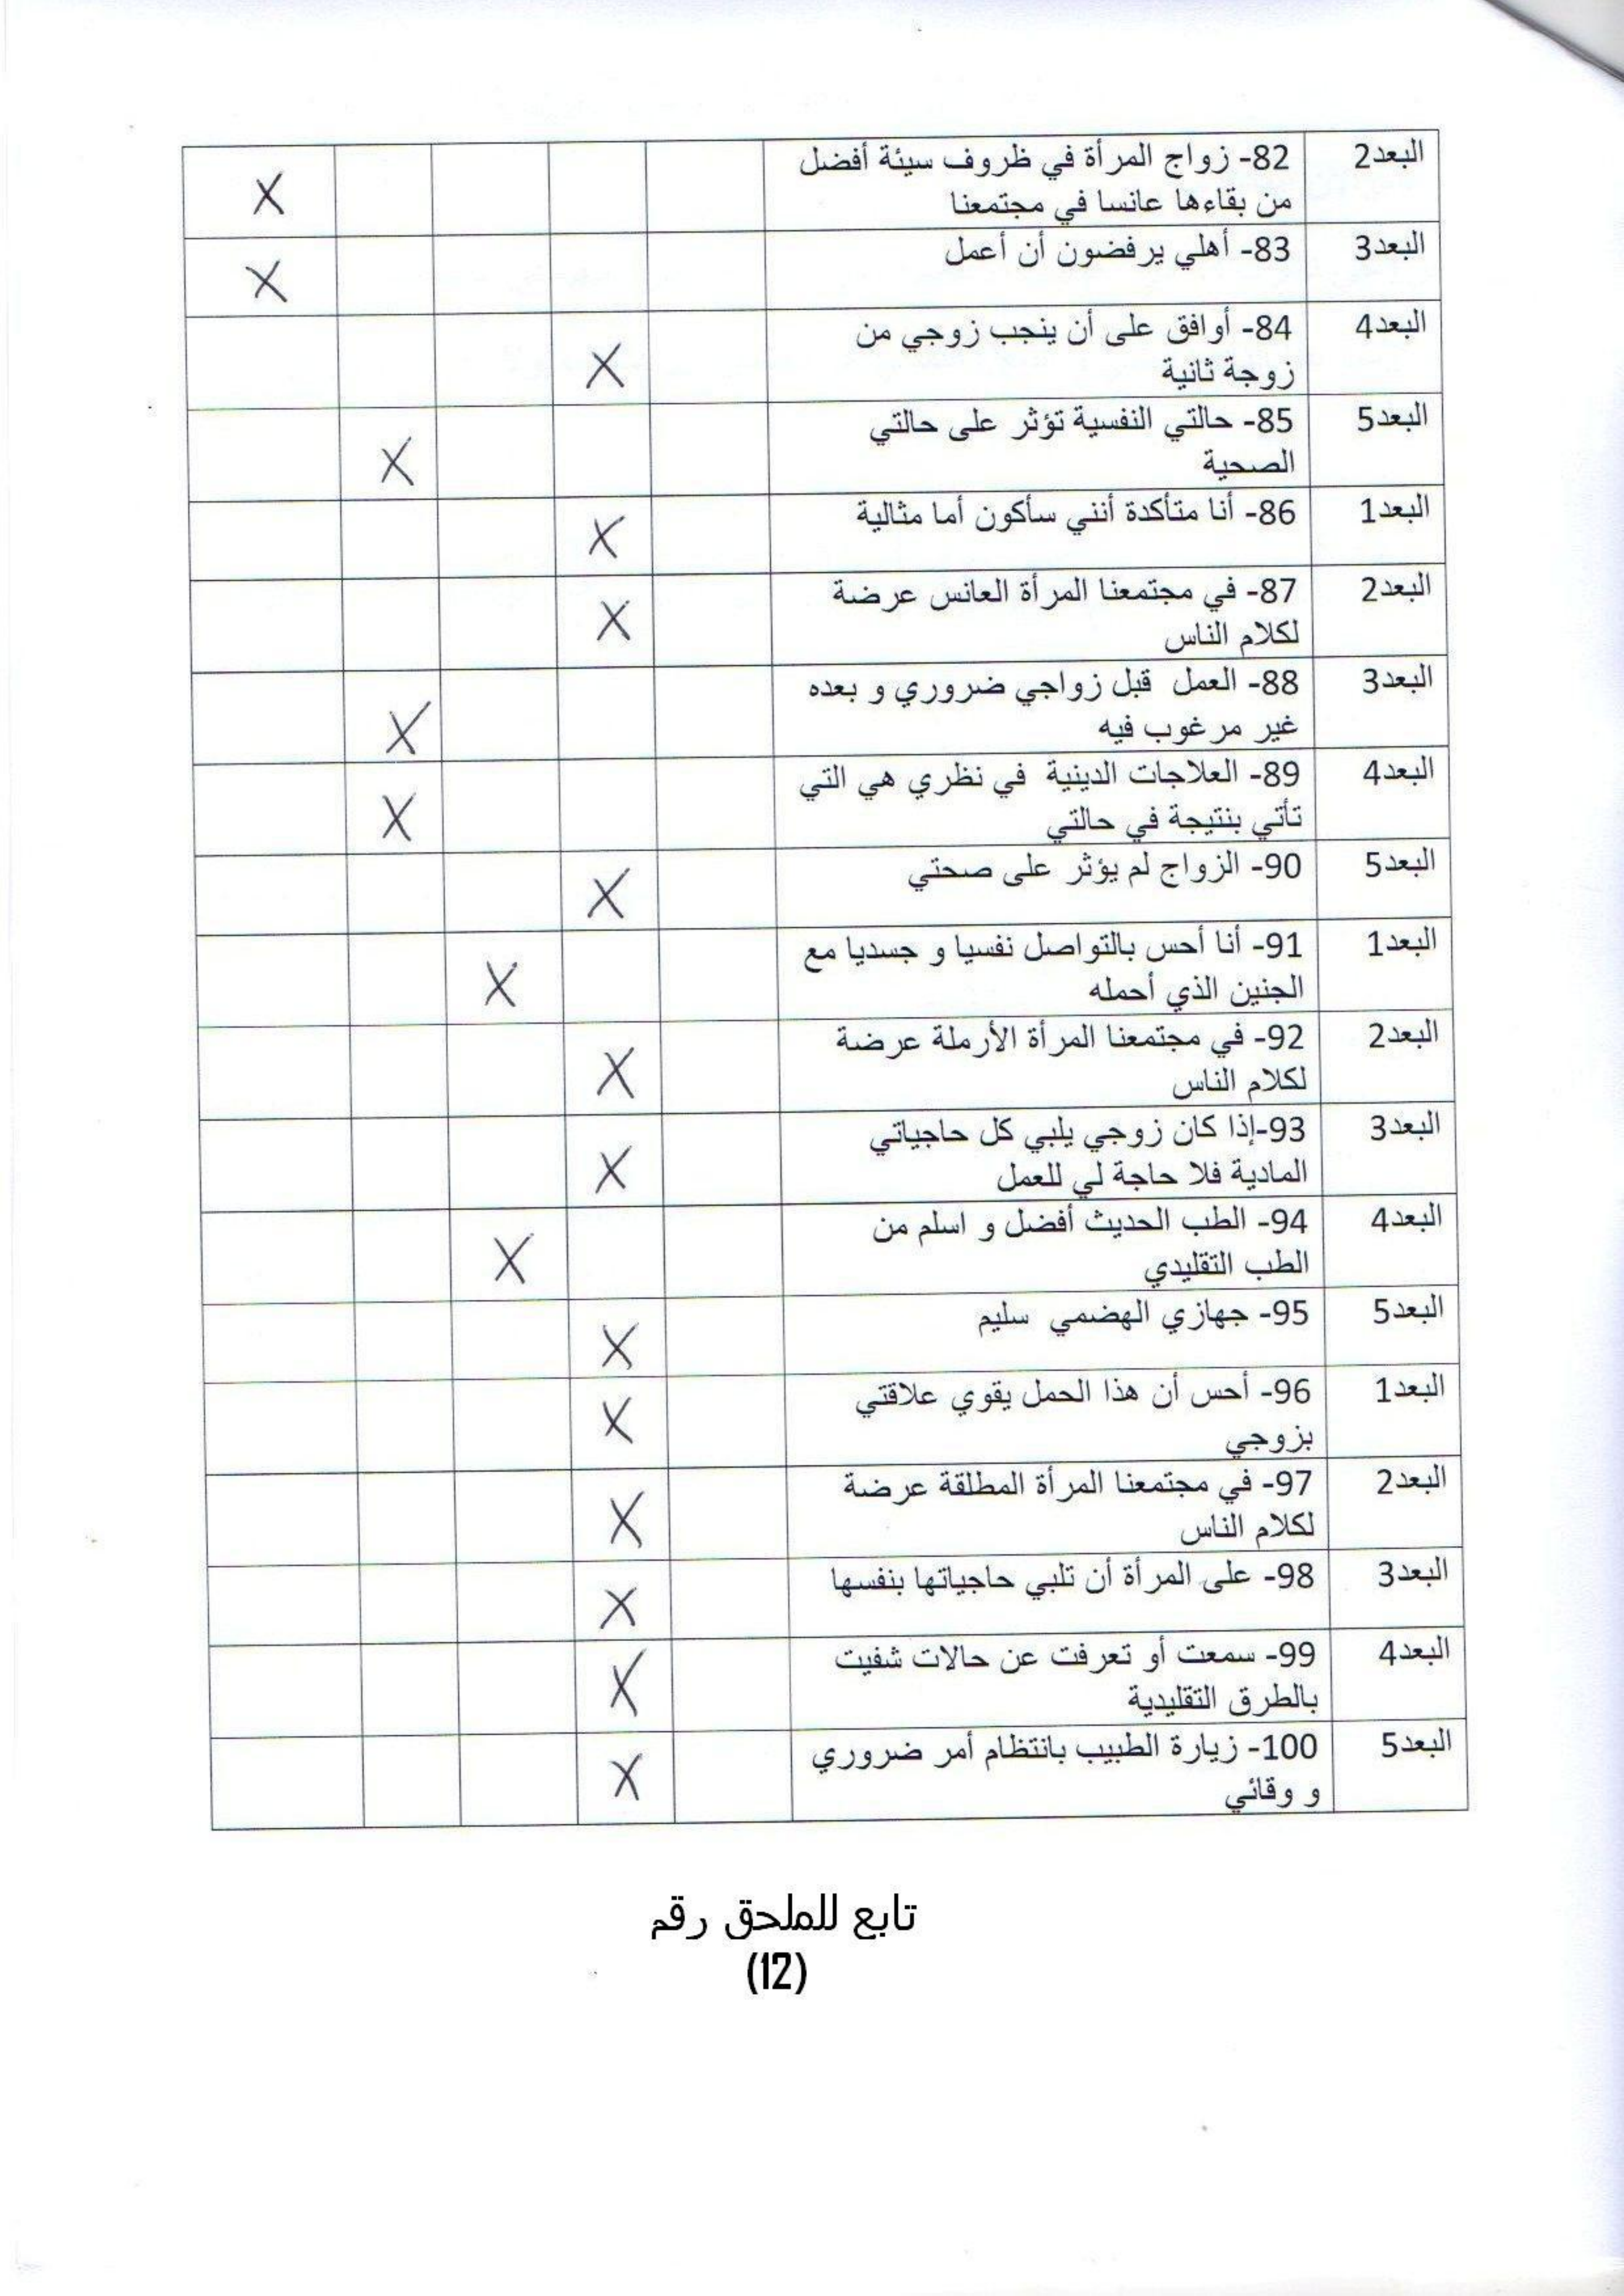 البعد2
82- زواج المرأة في ظروف سيئة أفضل
من بقاءها عانسا في مجتمعنا
X
البعد3
83- أهلي يرفضون أن أعمل
X
البعد4
84- أوافق على أن ينجب زوجي من
زوجة ثانية
X
البعد5
85- حالتي النفسية تؤثر على حالتي
الصحية
X
البعد1
86- أنا متأكدة أنني سأكون أما مثالية
X
البعد2
87- في مجتمعنا المرأة العانس عرضة
لكلام الناس
X
البعد3
88- العمل قبل زواجي ضروري و بعده
غير مرغوب فيه
X
البعد4
89- العلاجات الدينية في نظري هي التي
تأتي بنتيجة في حالتي
X
البعد5
90- الزواج لم يؤثر على صحتي
X
البعد1
91- أنا أحس بالتواصل نفسيا و جسديا مع
الجنين الذي أحمله
X
البعد2
92- في مجتمعنا المرأة الأرملة عرضة
لكلام الناس
X
البعد3
93-إذا كان زوجي يلبي كل حاجياتي
المادية فلا حاجة لي للعمل
X
البعد4
94- الطب الحديث أفضل و اسلم من
الطب التقليدي
X
البعد5
95- جهازي الهضمي سليم
X
البعد1
96- أحس أن هذا الحمل يقوي علاقتي
بزوجي
X
البعد2
97- في مجتمعنا المرأة المطلقة عرضة
لكلام الناس
X
البعد3
98- على المرأة أن تلبي حاجياتها بنفسها
X
البعد4
99- سمعت أو تعرفت عن حالات شفيت
بالطرق التقليدية
X
البعد5
100- زيارة الطبيب بانتظام أمر ضروري
و وقائي
X
تابع للملحق رقم
(12)